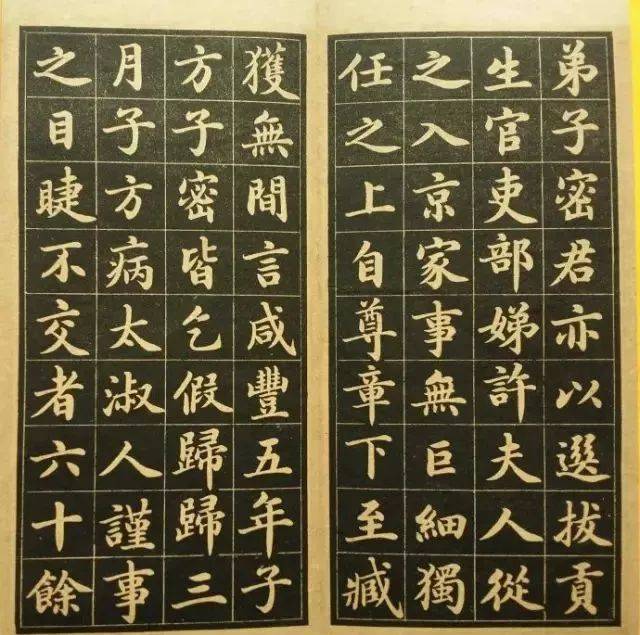 弟子密君亦以選拔貢
生官吏部娣許夫人從
之入京家事無巨細獨
任之上自尊章下至臧
獲無間言咸豐五年子
方子密皆乞假歸歸三
月子方病太淑人謹事
之目睫不交者六十餘